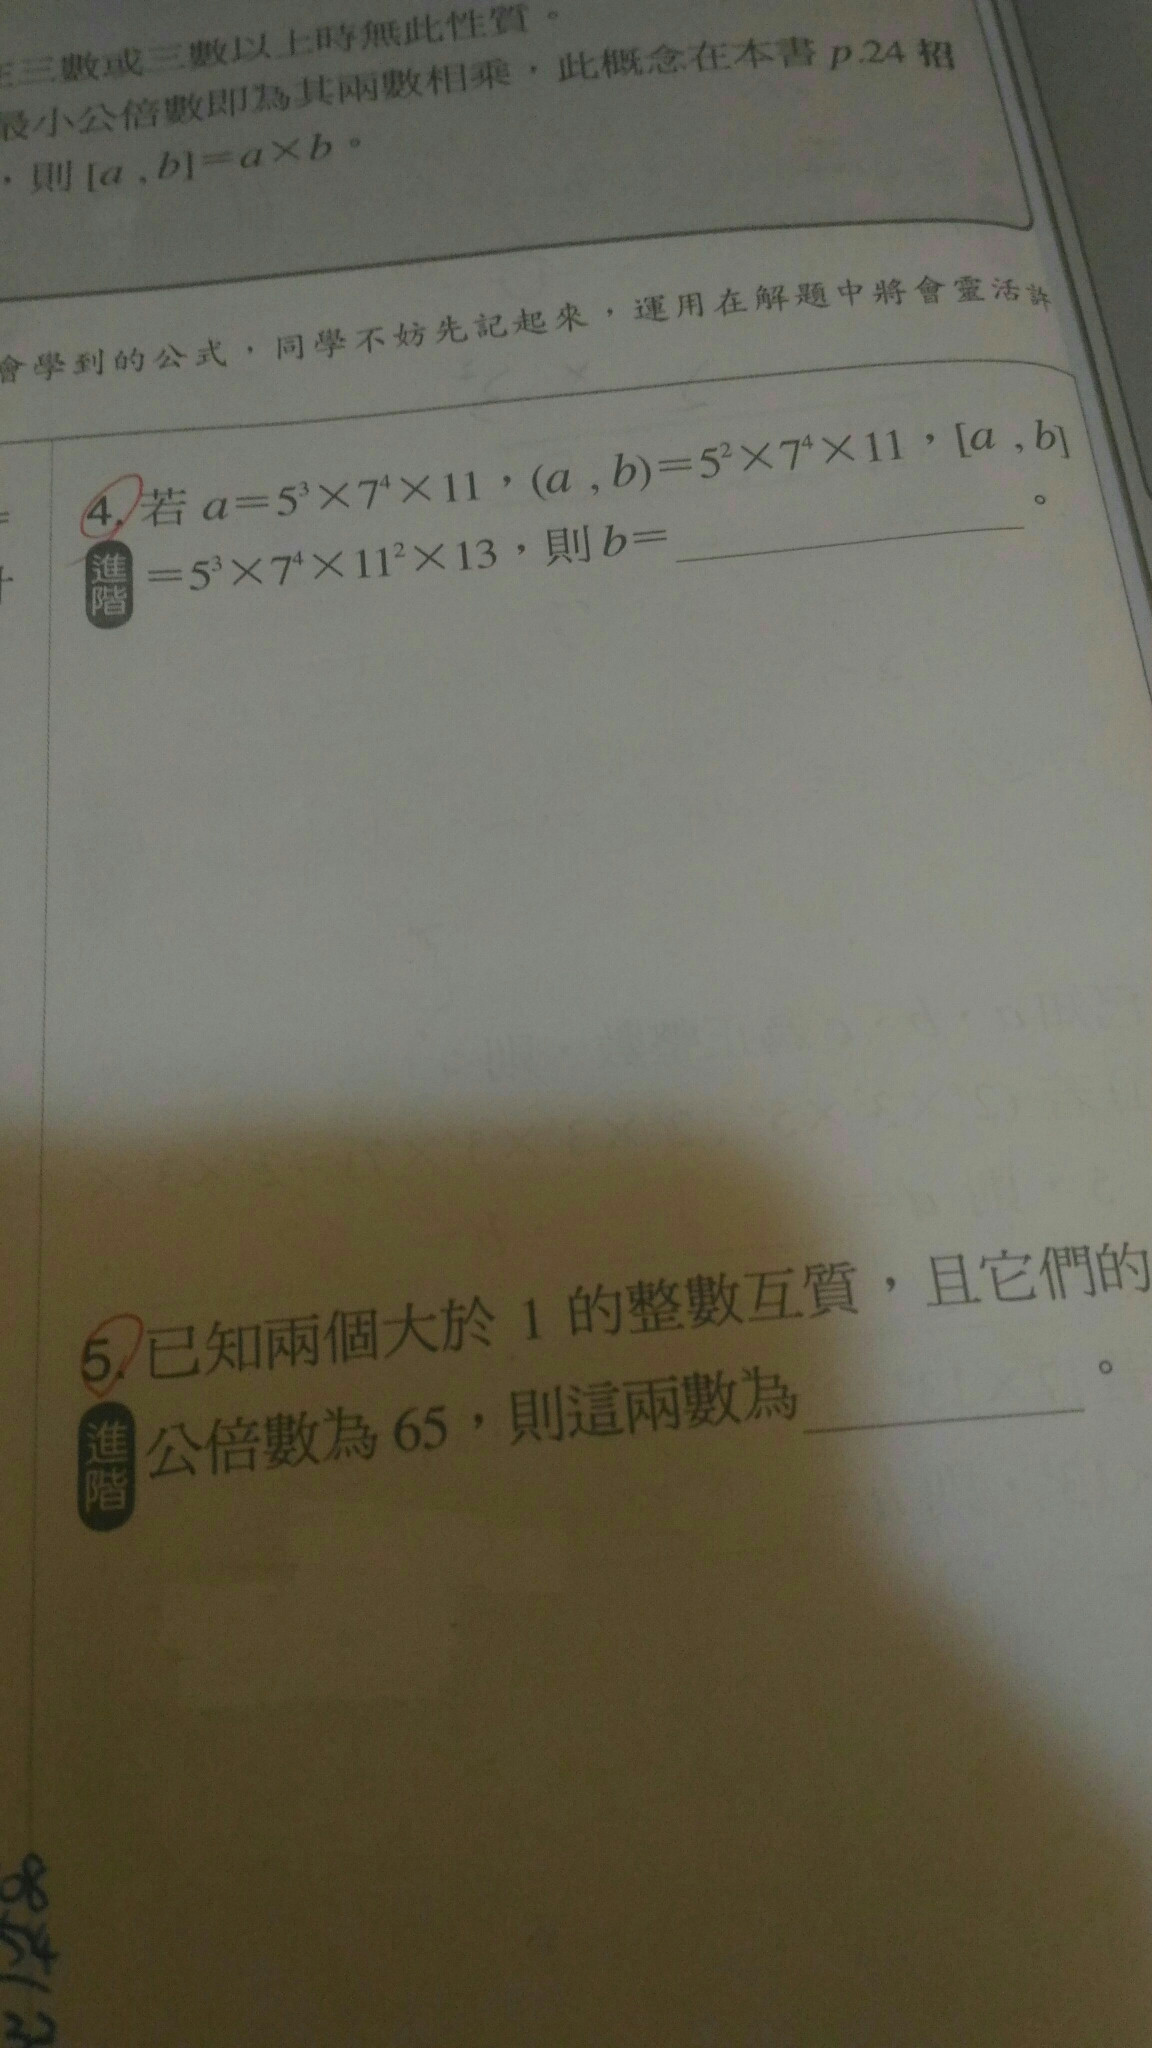 三數或三數以上時無此性質。
最小公倍數即為其兩數相乘，此概念在本書 p.24 招
，則 [a , b]=a×b。
會學到的公式，同學不妨先記起來，運用在解題中將會靈活許
4. 若 a=5³×7⁴×11，(a , b)=5²×7⁴×11，[a , b]
進階 =5³×7⁴×11²×13，則 b=＿＿＿＿＿＿。
5. 已知兩個大於 1 的整數互質，且它們的
進階 公倍數為 65，則這兩數為＿＿＿＿＿。